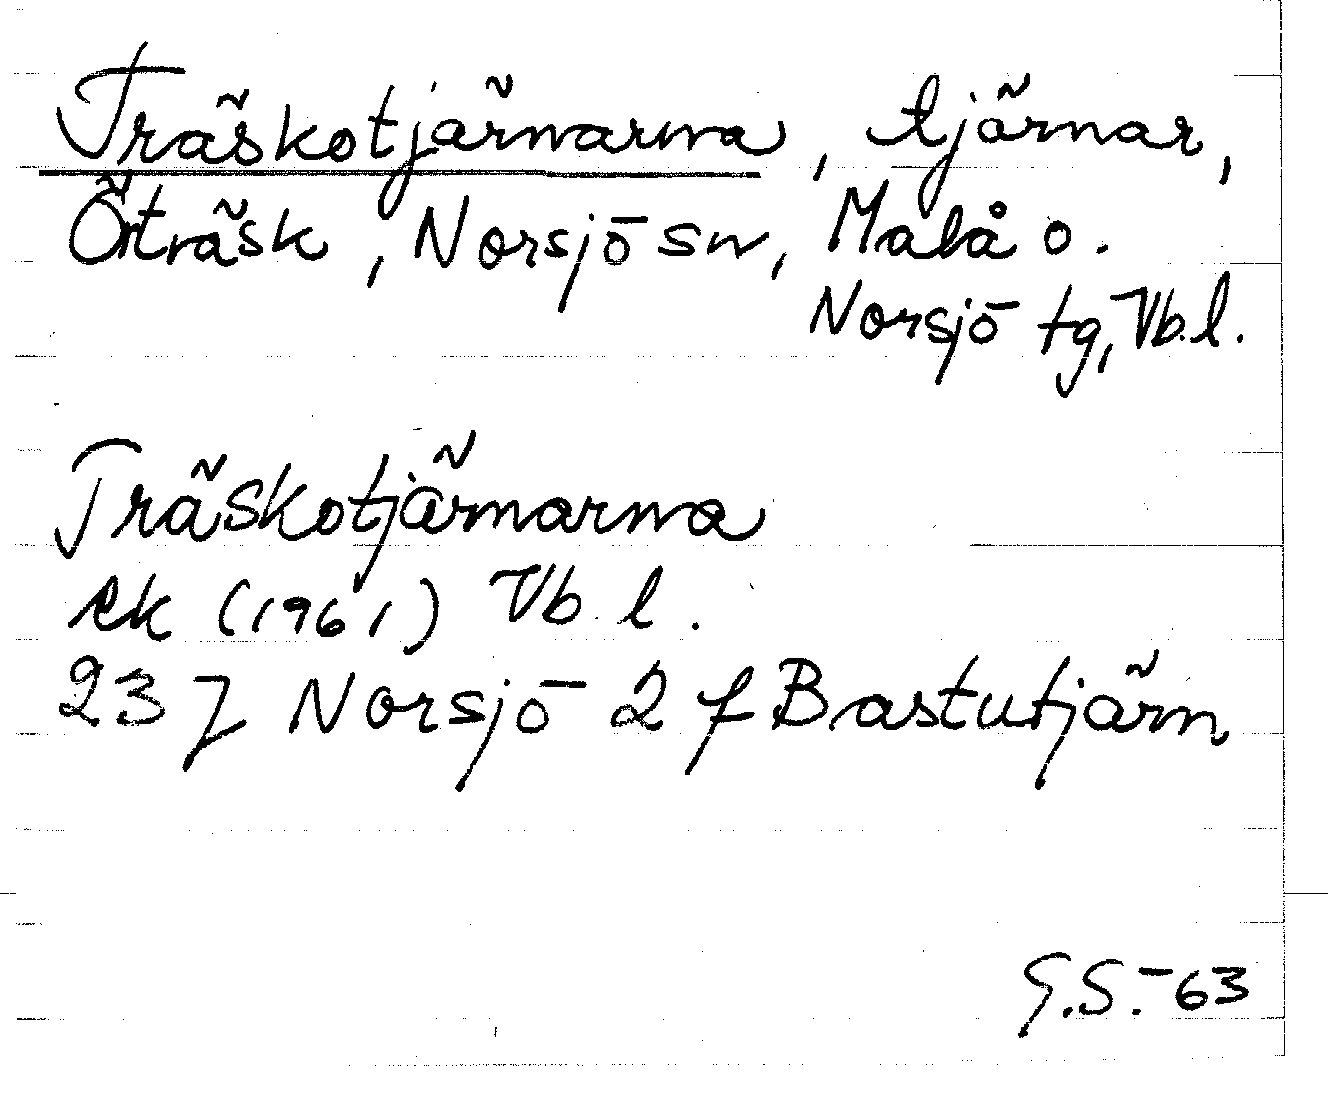 Träskotjärnarna, tjärnar,
Örträsk, Norsjö sn, Malå o.
Norsjö tg, Vb. l.
Träskotjärnarna
ek (1961) Vb l.
23 J Norsjö 2 f Bastutjärn
G.S.-63